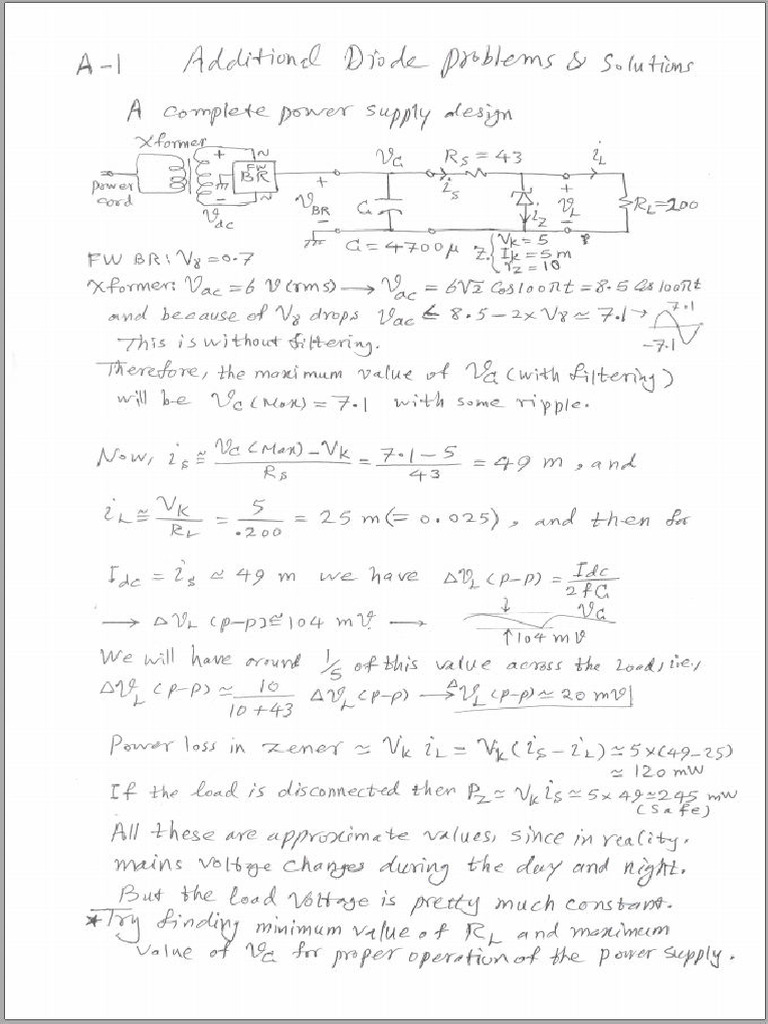 A-1 Additional Diode Problems & Solutions
A complete power supply design
Xformer
power cord
+ ~ FW BR ~ -
Vdc
+ VBR -
VC
C = 4700μ
RS = 43
iS
iZ
Z { VK = 5
IK = 5m
rZ = 10
+ VL -
iL
RL = 200
FW BR: Vγ = 0.7
Xformer: Vac = 6 V(rms) → Vac = 6√2 Cos100πt = 8.5 Cos100πt
and because of Vγ drops Vac ≤ 8.5 - 2xVγ ≃ 7.1 → 7.1
-7.1
This is without filtering.
Therefore, the maximum value of VC (with filtering)
will be VC(Max) = 7.1 with some ripple.
Now, iS ≅ (VC(Max) - VK)/RS = (7.1-5)/43 = 49 m, and
iL ≅ VK/RL = 5/.200 = 25 m (= 0.025), and then for
Idc = iS ≃ 49 m we have ΔVL (p-p) = Idc/2fC
→ ΔVL (p-p) ≅ 104 mV. → VC
↑104 mV
We will have around 1/5 of this value across the load, i.e.,
ΔVL (p-p) ≃ 10/(10+43) ΔVL (p-p) → ΔVL (p-p) ≃ 20 mV
Power loss in zener ≃ VK iL = VK (iS - iL) ≃ 5x(49-25)
≃ 120 mW
If the load is disconnected then PZ ≃ VK iS ≃ 5x49 ≃ 245 mW
(Safe)
All these are approximate values, since in reality.
mains voltage changes during the day and night.
But the load voltage is pretty much constant.
*Try finding minimum value of RL and maximum
value of VC for proper operation of the power supply.